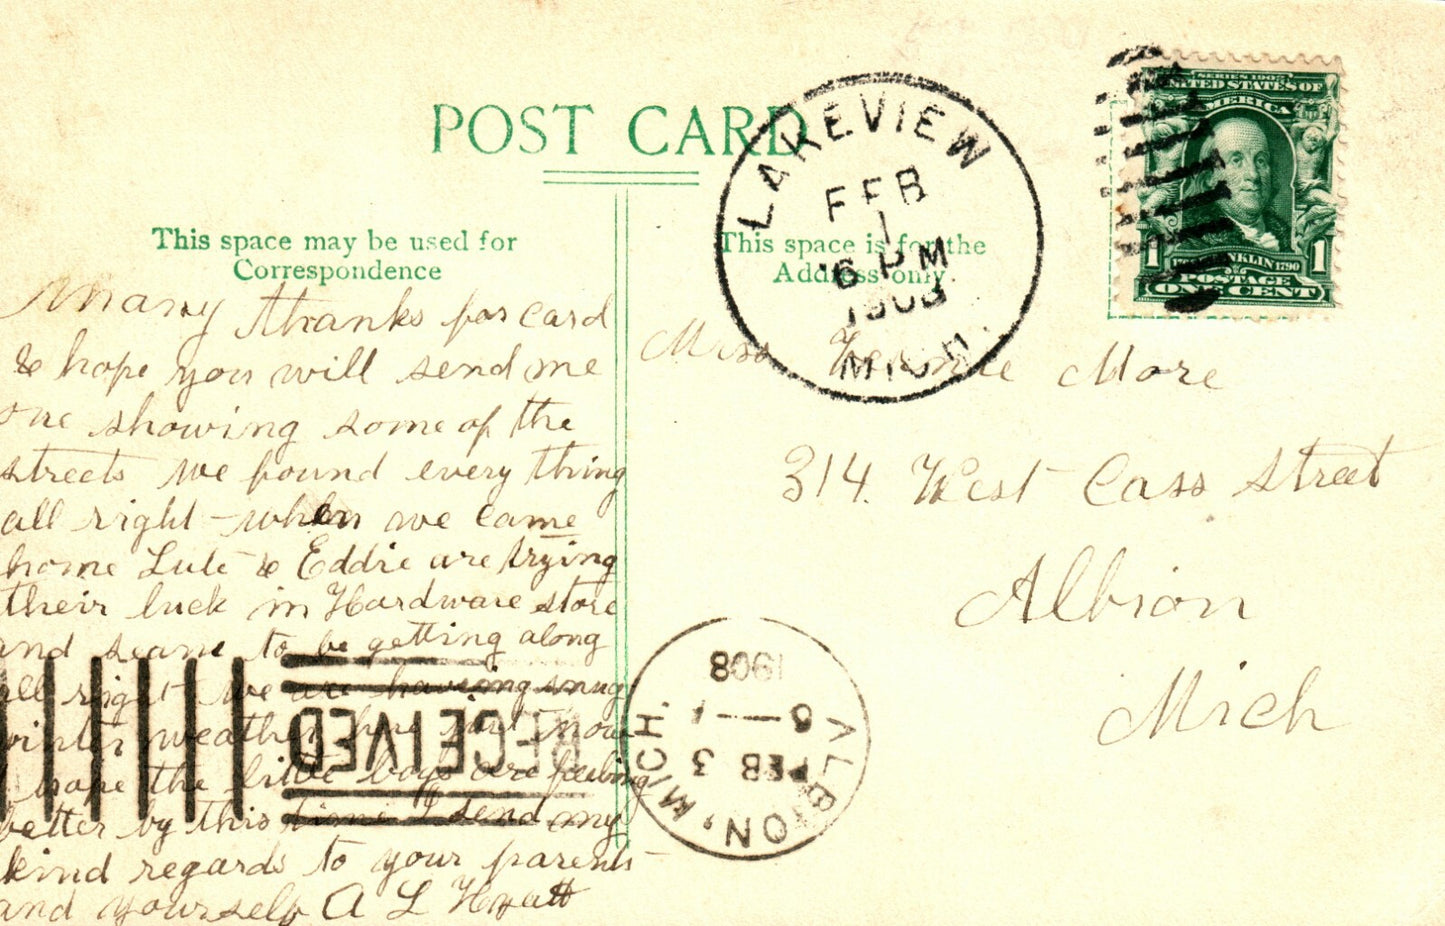 POST CARD
This space may be used for
Correspondence
Many thanks for card
& hope you will send me
one showing some of the
streets we found every thing
all right - when we came
home Lute & Eddie are trying
their luck in Hardware store
and seam to be getting along
all right we are having snug
winter weather here just now
I hope the little boys are feeling
better by this time I send my
kind regards to your parents
and yourself A L Hyatt
This space is for the
Address only.
LAKEVIEW
FEB
1
6 PM
1908
MICH.
SERIES 1902
UNITED STATES OF
AMERICA
FRANKLIN 1790
POSTAGE
1 ONE CENT 1
Miss More
314. West Cass Street
Albion
Mich
RECEIVED
ALBION, MICH.
FEB 3
1908